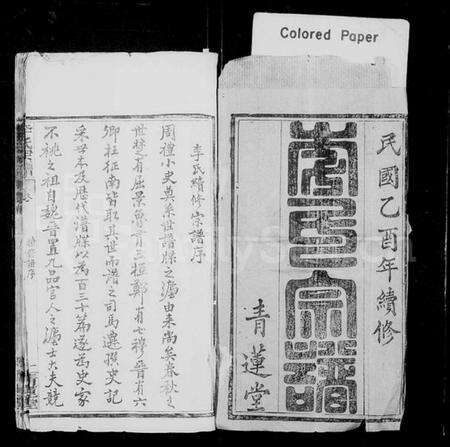 Colored Paper
民國乙酉年續修
李氏宗譜
青蓮堂
李氏續修宗譜序
周禮小史奠系世譜牒之濫由来尚矣春秋之
世楚有屈景魯有三桓鄭有七穆晉有六
卿杜征南皆取其世而譜之司馬遷撰史記
采世本及歷代譜牒以為百三十篇遂為史家
不祧之祖自魏晉置九品官人之濫士大夫競